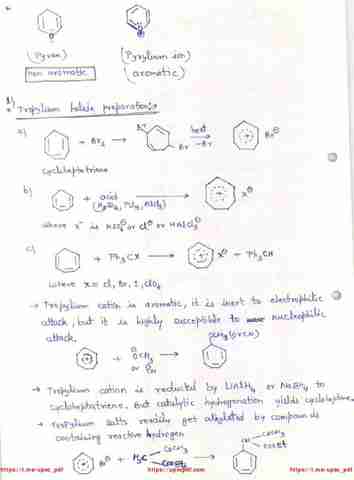 (Pyran) (Pyrylium ion)
non aromatic (aromatic)
Tropylium halide preparation:-
a) + Br₂ → Br Br heat -Br Br⊖
Cycloheptatriene
b) + acid → X⊖
where X⁻ is HSO₄⊖ or Cl⊖ or HAlCl₃⊖
c) + Ph₃CX → X⊖ + Ph₃CH
where X = Cl, Br, I, ClO₄
→ Tropylium cation is aromatic, it is inert to electrophilic
attack, but it is highly susceptible to nucleophilic
attack.
OCH₃ (or CN)
+ ⊖OCH₃ →
or CN
→ Tropylium cation is reducted by LiAlH₄ or NaBH₄ to
cycloheptatriene. But catalytic hydrogenation yields cycloheptane.
→ Tropylium salts readily get alkylated by compounds
containing reactive hydrogen
Br⊖ + H₂C COCH₃ → CH COCH₃
COOEt COOEt
https://t.me/upsc_pdf https://upscpdf.com https://t.me/upsc_pdf